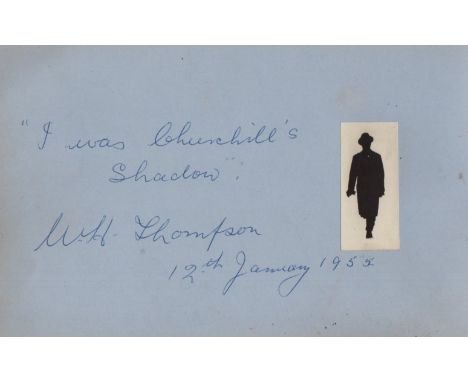 "I was Churchill's
Shadow".
W.H. Thompson
12th January 1955